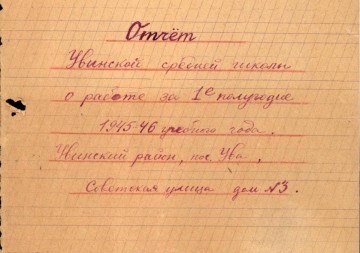 Отчёт
Увинской средней школы
о работе за 1е полугодие
1945-46 учебного года.
Увинский район, пос. Ува,
Советская улица дом №3.